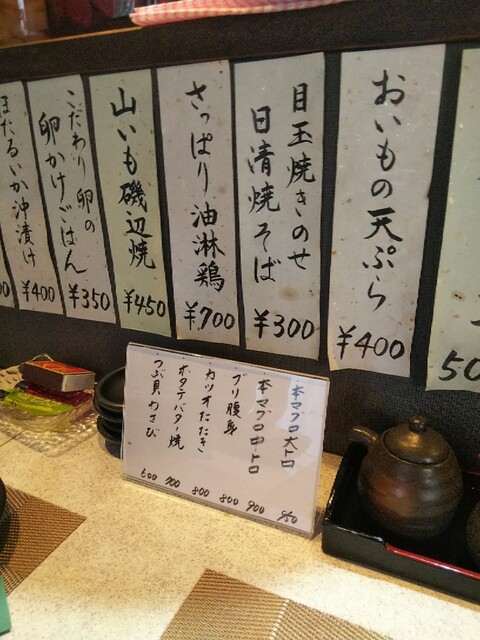 50
おいもの天ぷら
¥400
目玉焼きのせ
日清焼そば
¥300
さっぱり油淋鶏
¥700
山いも磯辺焼
¥450
こだわり卵の
卵かけごはん
¥350
ほたるいか沖漬け
¥400
00
本マグロ大トロ
本マグロ中トロ 900
ブリ腹身 800
カツオたたき 800
ホタテバター焼 700
つぶ貝わさび 600